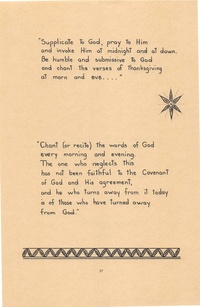 "Supplicate to God, pray to Him
and invoke Him at midnight and at dawn.
Be humble and submissive to God
and chant the verses of thanksgiving
at morn and eve...."
"Chant (or recite) the words of God
every morning and evening.
The one who neglects this
has not been faithful to the Covenant
of God and His agreement,
and he who turns away from it today
is of those who have turned away
from God."